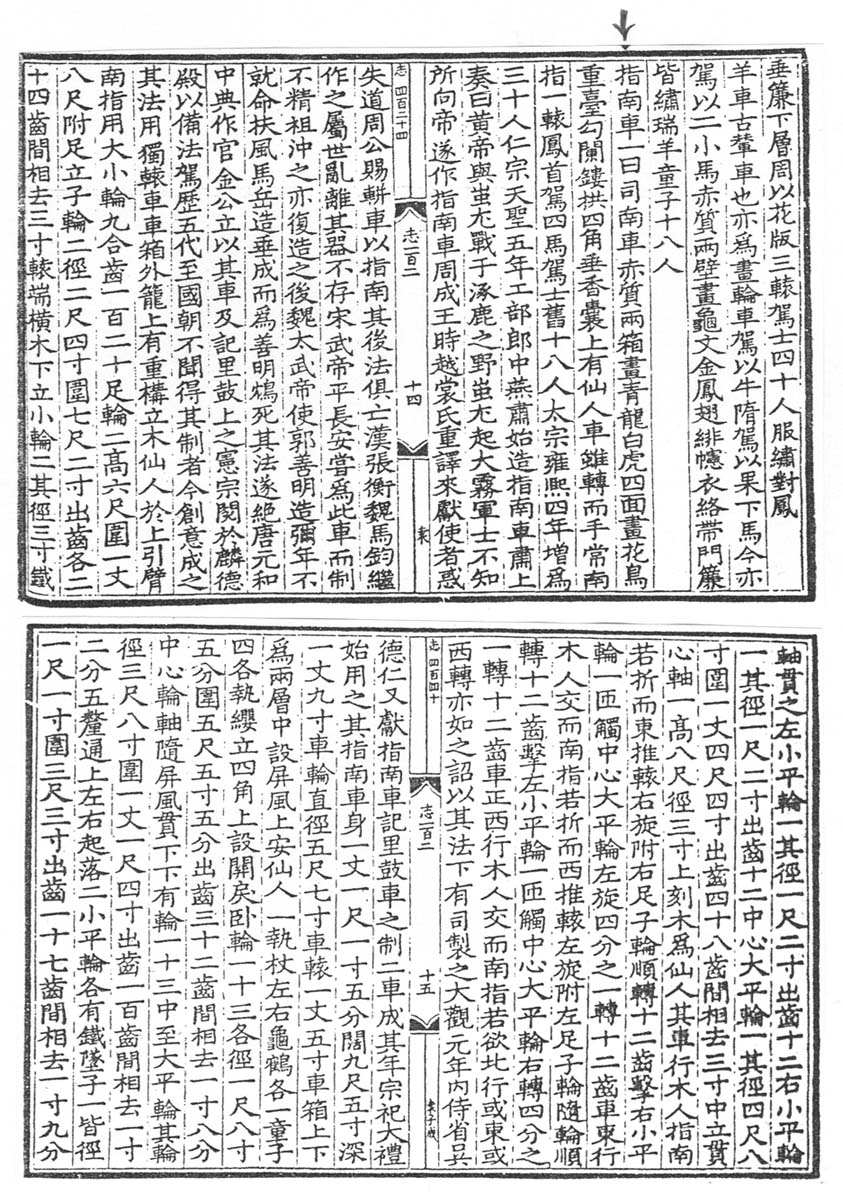 垂簾下層周以花版三轅駕士四十人服繡對鳳
羊車古輦車也亦爲畫輪車駕以牛隋駕以果下馬今亦
駕以二小馬赤質兩壁畫龜文金鳳翅緋幰衣絡帶門簾
皆繡瑞羊童子十八人
指南車一曰司南車赤質兩箱畫青龍白虎四面畫花鳥
重臺勾闌鏤拱四角垂香囊上有仙人車雖轉而手常南
指一轅鳳首駕四馬駕士舊十八人太宗雍熙四年增爲
三十人仁宗天聖五年工部郎中燕肅始造指南車肅上
奏曰黃帝與蚩尤戰于涿鹿之野蚩尤起大霧軍士不知
所向帝遂作指南車周成王時越裳氏重譯來獻使者惑
志 四百二十四
志一百二
十四
失道周公賜軿車以指南其後法俱亡漢張衡魏馬鈞繼
作之屬世亂離其器不存宋武帝平長安嘗爲此車而制
不精祖沖之亦復造之後魏太武帝使郭善明造彌年不
就命扶風馬岳造垂成而爲善明鴆死其法遂絕唐元和
中典作官金公立以其車及記里鼓上之憲宗閱於麟德
殿以備法駕歷五代至國朝不聞得其制者今創意成之
其法用獨轅車車箱外籠上有重構立木仙人於上引臂
南指用大小輪九合齒一百二十足輪二高六尺圍一丈
八尺附足立子輪二徑二尺四寸圍七尺二寸出齒各二
十四齒間相去三寸轅端橫木下立小輪二其徑三寸鐵
軸貫之左小平輪一其徑一尺二寸出齒十二右小平輪
一其徑一尺二寸出齒十二中心大平輪一其徑四尺八
寸圍一丈四尺四寸出齒四十八齒間相去三寸中立貫
心軸一高八尺徑三寸上刻木爲仙人其車行木人指南
若折而東推轅右旋附右足子輪順轉十二齒擊右小平
輪一匝觸中心大平輪左旋四分之一轉十二齒車東行
木人交而南指若折而西推轅左旋附左足子輪隨輪順
轉十二齒擊左小平輪一匝觸中心大平輪右轉四分之
一轉十二齒車正西行木人交而南指若欲北行或東或
西轉亦如之詔以其法下有司製之大觀元年內侍省吳
志 四百四十
志一百二
十五
德仁又獻指南車記里鼓車之制二車成其年宗祀大禮
始用之其指南車身一丈一尺一寸五分闊九尺五寸深
一丈九寸車輪直徑五尺七寸車轅一丈五寸車箱上下
爲兩層中設屏風上安仙人一執杖左右龜鶴各一童子
四各執纓立四角上設關戾臥輪一十三各徑一尺八寸
五分圍五尺五寸五分出齒三十二齒間相去一寸八分
中心輪軸隨屏風貫下下有輪一十三中至大平輪其輪
徑三尺八寸圍一丈一尺四寸出齒一百齒間相去一寸
二分五釐通上左右起落二小平輪各有鐵墜子一皆徑
一尺一寸圍三尺三寸出齒一十七齒間相去一寸九分